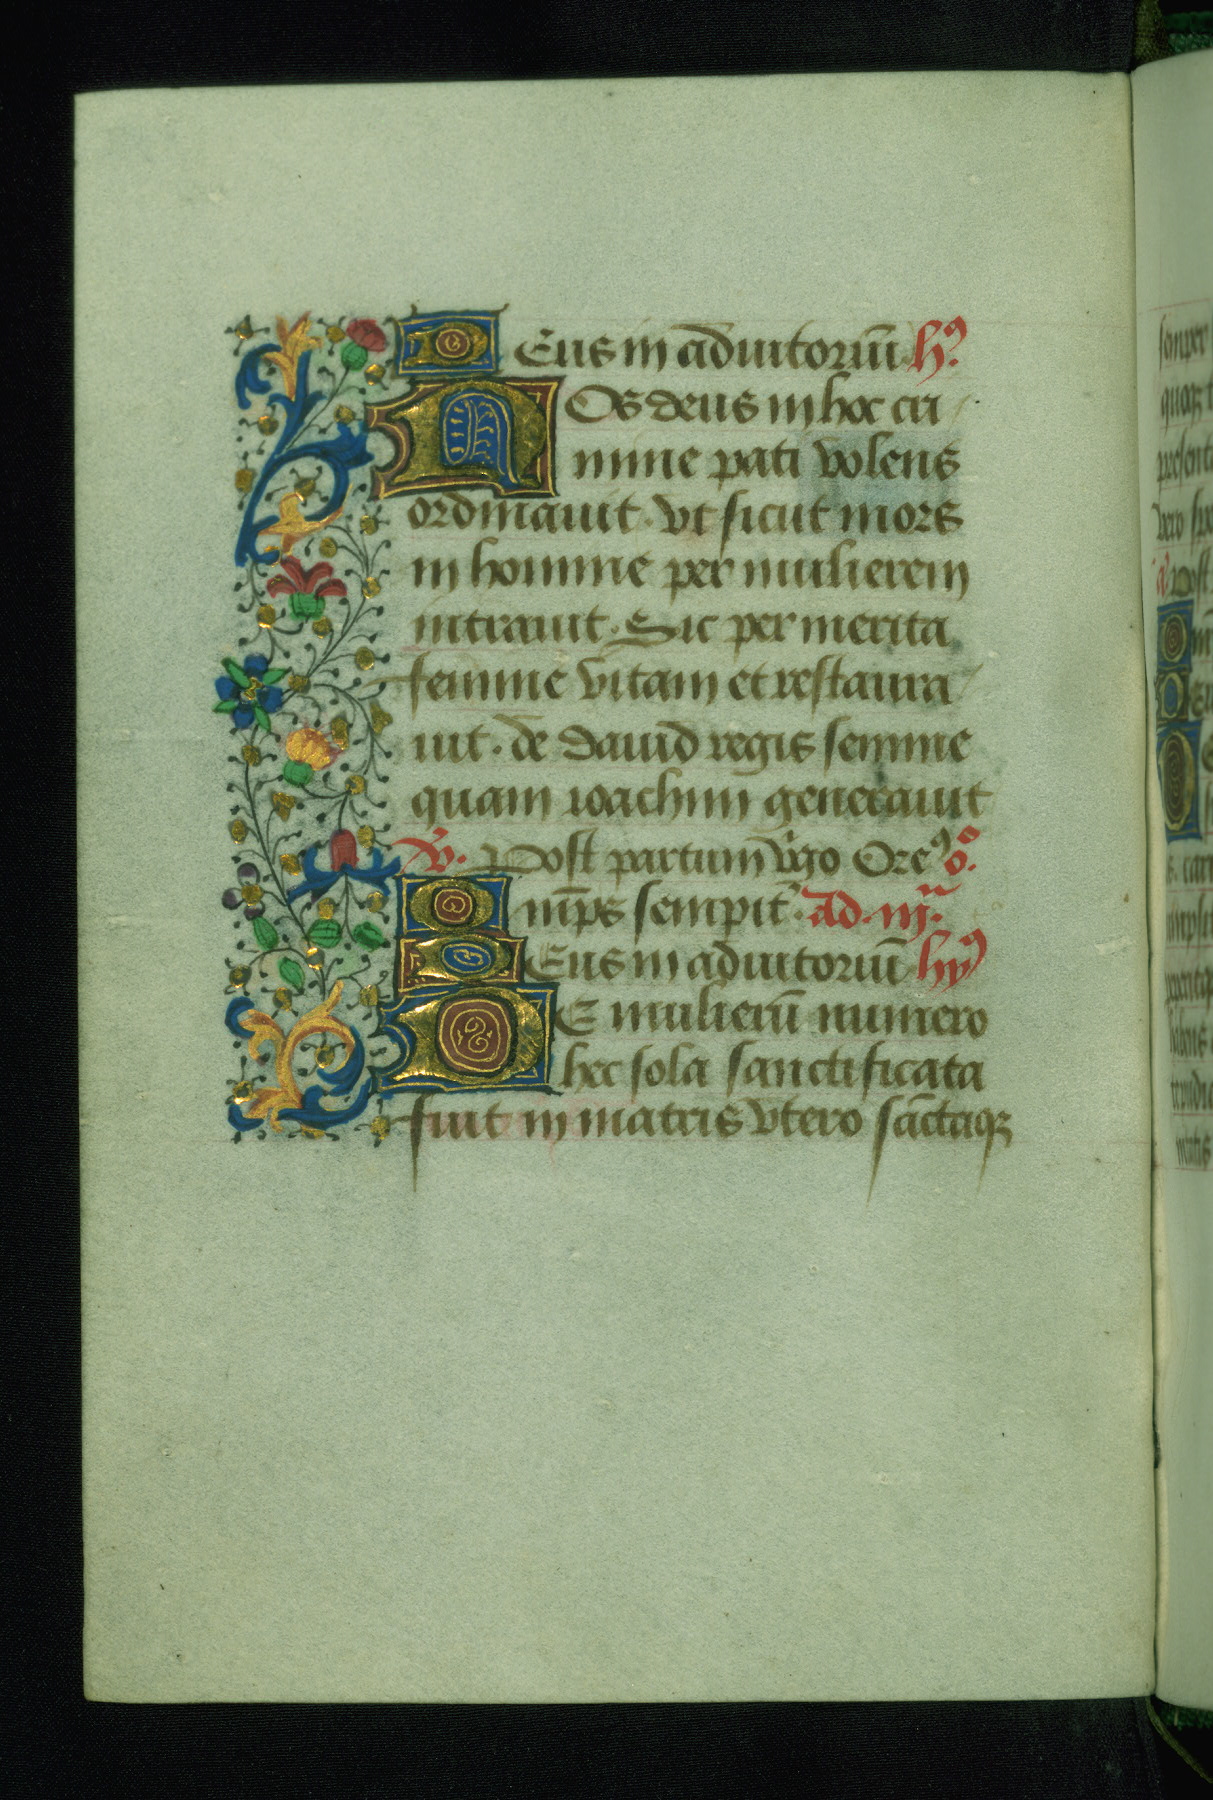 Deus in adiutoriũ hꝰ
Nos deus in hoc cri
mine pati volens
ordinauit. vt sicut mors
in homine per mulierem
intrauit. Sic per merita
femine vitam et restaura
uit. de dauid regis semine
quam ioachim generauit
V̄. Post partum v̄go Oreꝰ o.
Om̄ps sempit̄. ad. iij.
Deus in adiutoriũ hyꝰ
DE mulierũ numero
hec sola sanctificata
fuit in matris vtero sāctaqꝫ
semper